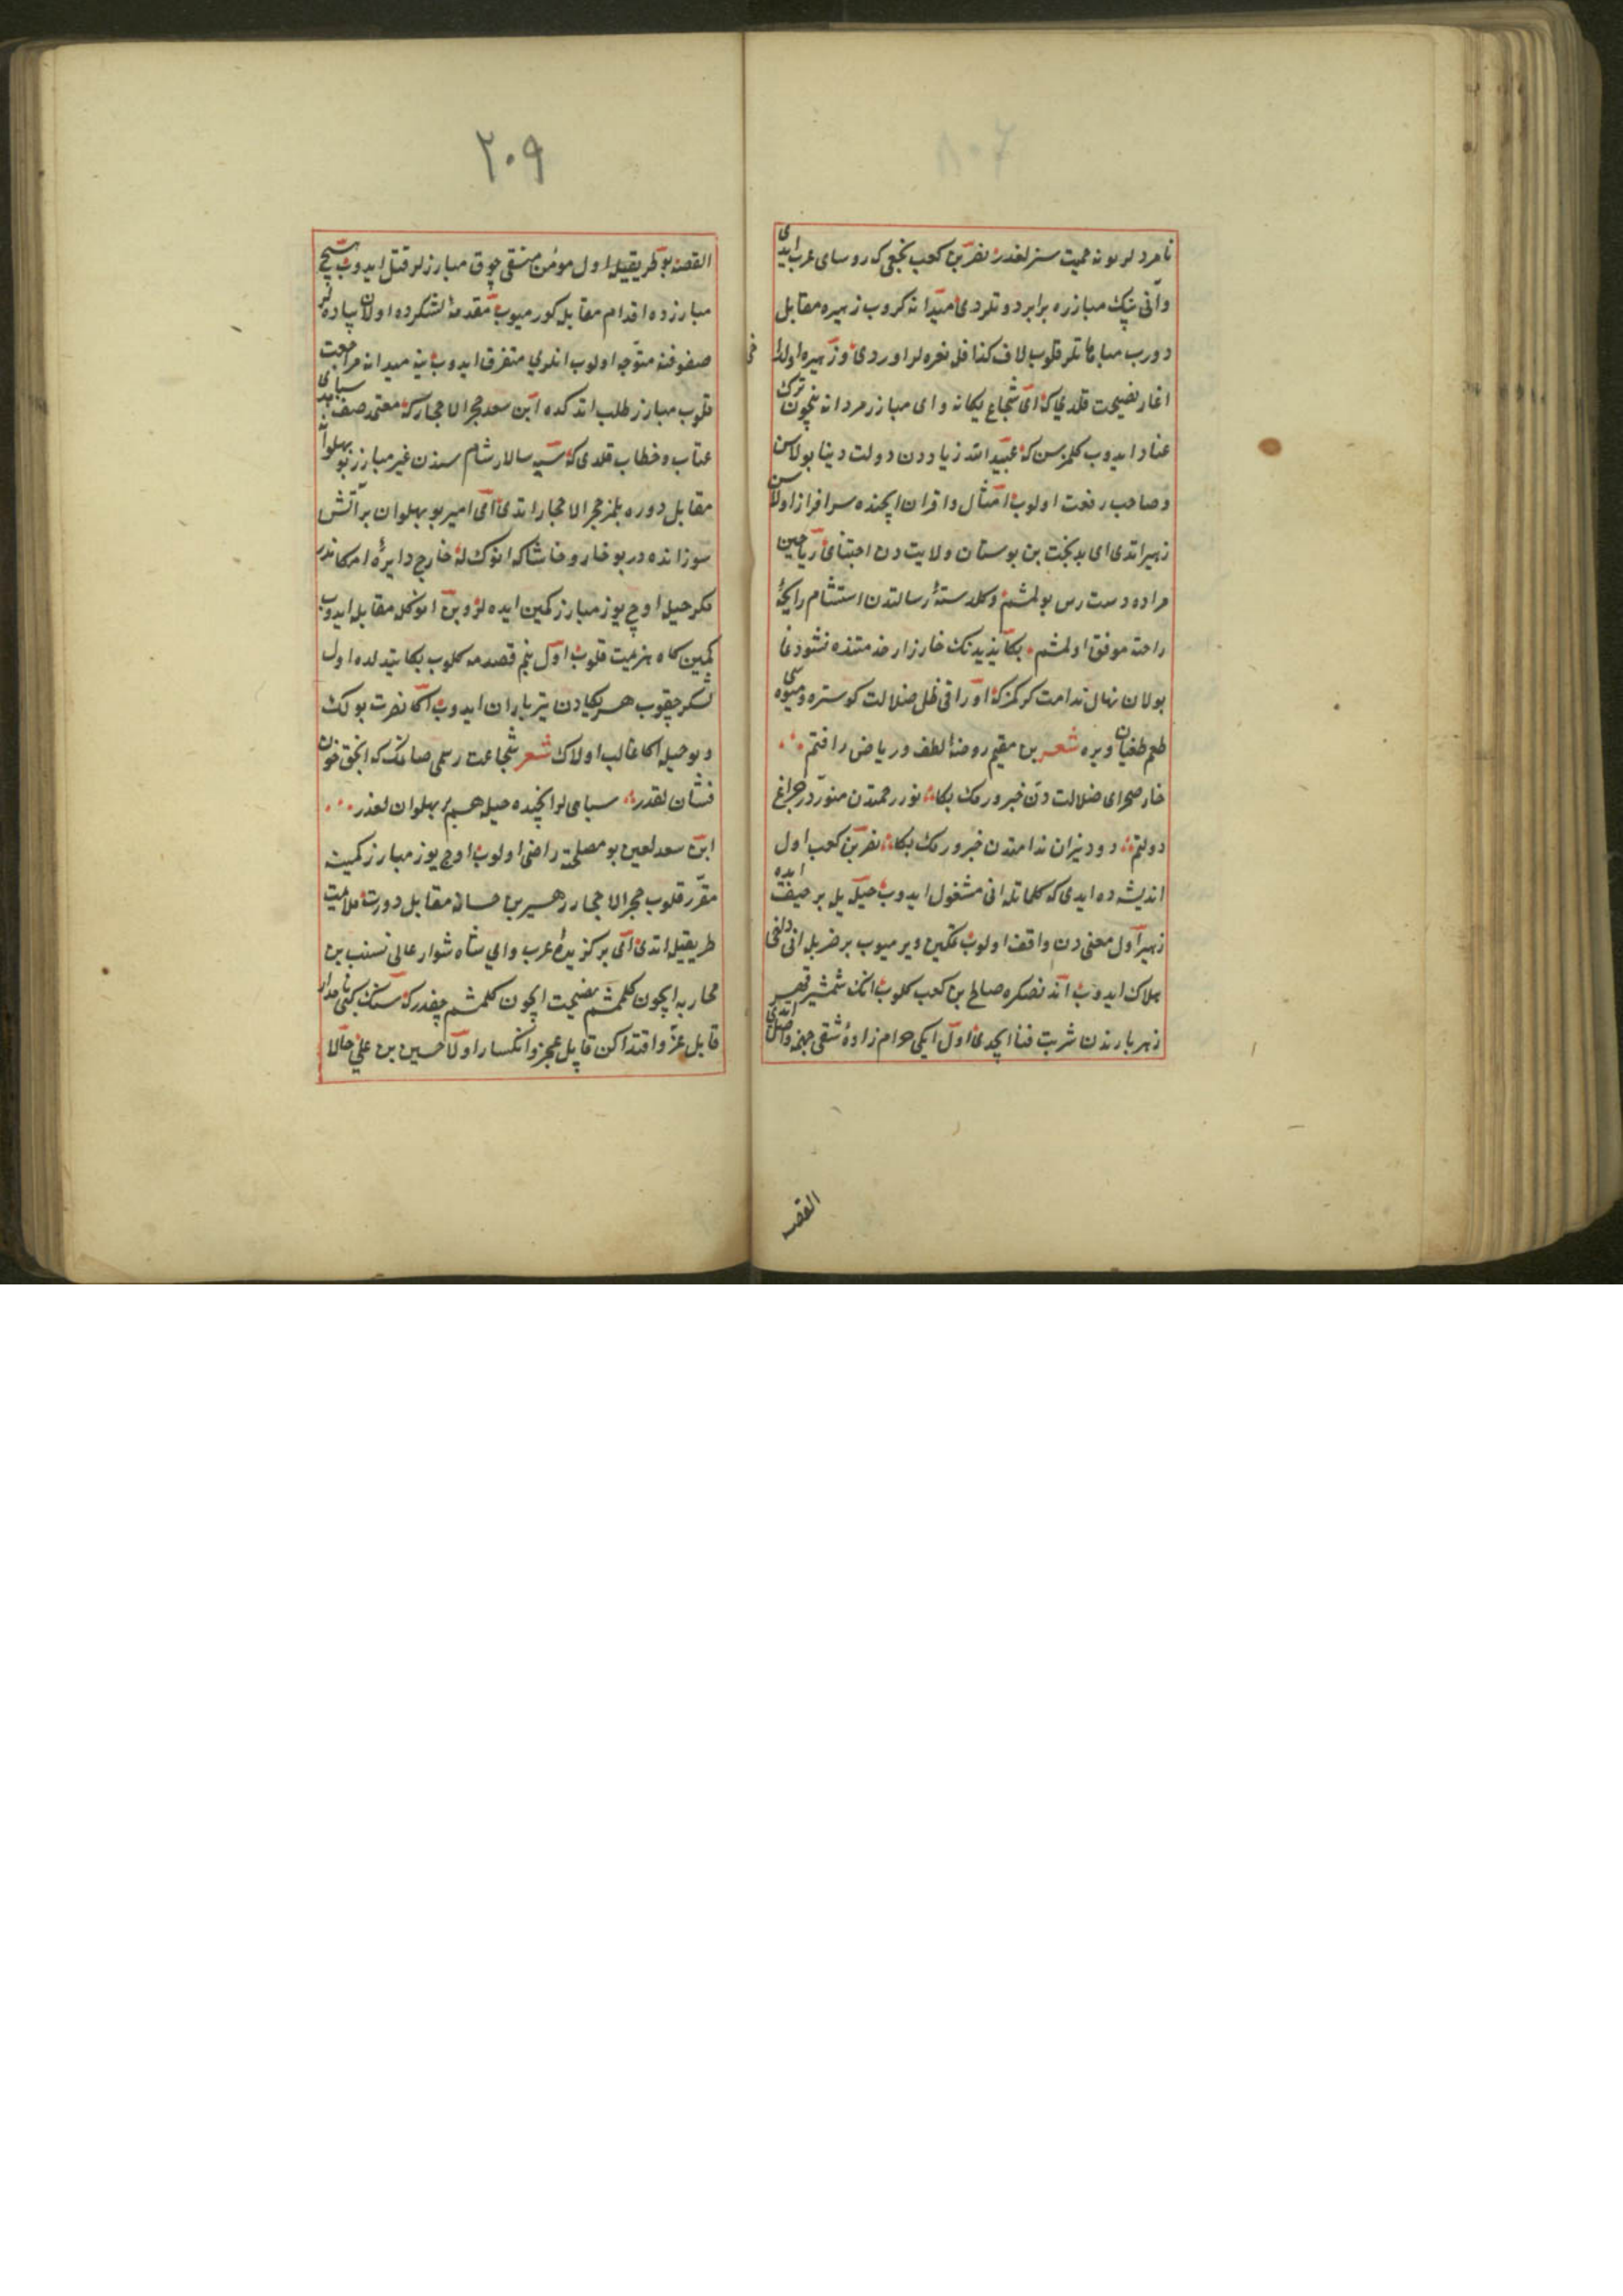 نامرد لر بو نه حمیت سزلغدر نصر بن کعب نخعی که روسای عرب ایدی
وآنی بیک مبارزه برابر دوتلردی میدانه کروب زهیره مقابل
دورب مباهاتلر قلوب لاف کذافله نعره لر اوردی وزهیره اولدا
اغاز نصیحت قلدی که ای شجاع یکانه وای مبارز مردانه نیچون ترک
عناد ایدوب کلمزسن که عبید الله زیاددن دولت دنیا بولاسن
وصاحب رفعت اولوب امثال واقران ایچنده سرافراز اولاسن
زهیر اتدی ای بدبخت بن بوستان ولایت دن اجتنای ریاحین
مراده دست رس بولمشم وکلدستۀ رسالتدن استشام رایحۀ
راحته موفق اولمشم بکا یزیدنک خارزار خدمتنده نشو و نما
بولان نهال ندامت کرکمز که اوراقی ظل ضلالت کوستره ومیوه سی
طعم طغیان ویره شعر بن مقیم روضۀ لطف وریاض رافتم
خار صحرای ضلالت دن خبر ورمک بکا نور رحمتدن منوردر چراغ
دولتم دود نیران ندامتدن خبر ورمک بکا نصر بن کعب اول
اندیشه ده ایدی که کلماتله انی مشغول ایدوب حیله یله بر حیف ایده
زهیر اول معنی دن واقف اولوب تمکین ویرمیوب بر ضربله انی دلخی
هلاک ایدوب آندنصکره صالح بن کعب کلوب انک شمشیر قهر
زهربارندن شربت فنا ایچدی اول ایکی حرام زادۀ شقی جهنمه واصل اتدی
القصه
٢٠٩
القصه بو طریقیله اول مومن متقی چوق مبارزلر قتل ایدوب هیچ
مبارزده اقدام مقابل کورمیوب مقدمۀ لشکرده اولان پیاده لر
صفوفنه متوجه اولوب انلری متفرق ایدوب ینه میدانه مراجعت
قلوب مبارز طلب اتدکده ابن سعد حجر الاحجار که معتمد صف سپاهی
عتاب وخطاب قلدی که سپه سالار شام سندن غیر مبارز بو پهلوانه
مقابل دوره بلمز حجر الاحجار اتدی ای امیر بو پهلوان بر آتش
سوزانده در بو خار وخاشاکه انوک له خارج دایرۀ امکاندر
مکر حیله اوچ یوز مبارز کمین ایده لر وبن انوکله مقابله ایدوب
کمین کاه هزیمت قلوب اول بنم قصدمه کلوب بکا یتدلده اول
لشکر چقوب هر یکادن تیرباران ایدوب اکا نصرت بولک
وبو حیله اکا غالب اولاک شعر شجاعت رسمی صانمک که انجق خون
فشان لقدر سپاهی لر ایچنده حیله هم بر پهلوان لغدر
ابن سعد لعین بو مصلحته راضی اولوب اوچ یوز مبارز کمینه
مقرر قلوب حجر الاحجار زهیر بن حسانه مقابل دورت ملامت
طریقیله اتدی ای برکزیدۀ عرب وای شاه شوار عالی نسب بن
محاربه ایچون کلمشم نصیحت ایچون کلمشم چقدر که سنک کبی نامدار
قابل عز واقتدار کن قابل عجز وانکسار اولا حسین بن علی حالا